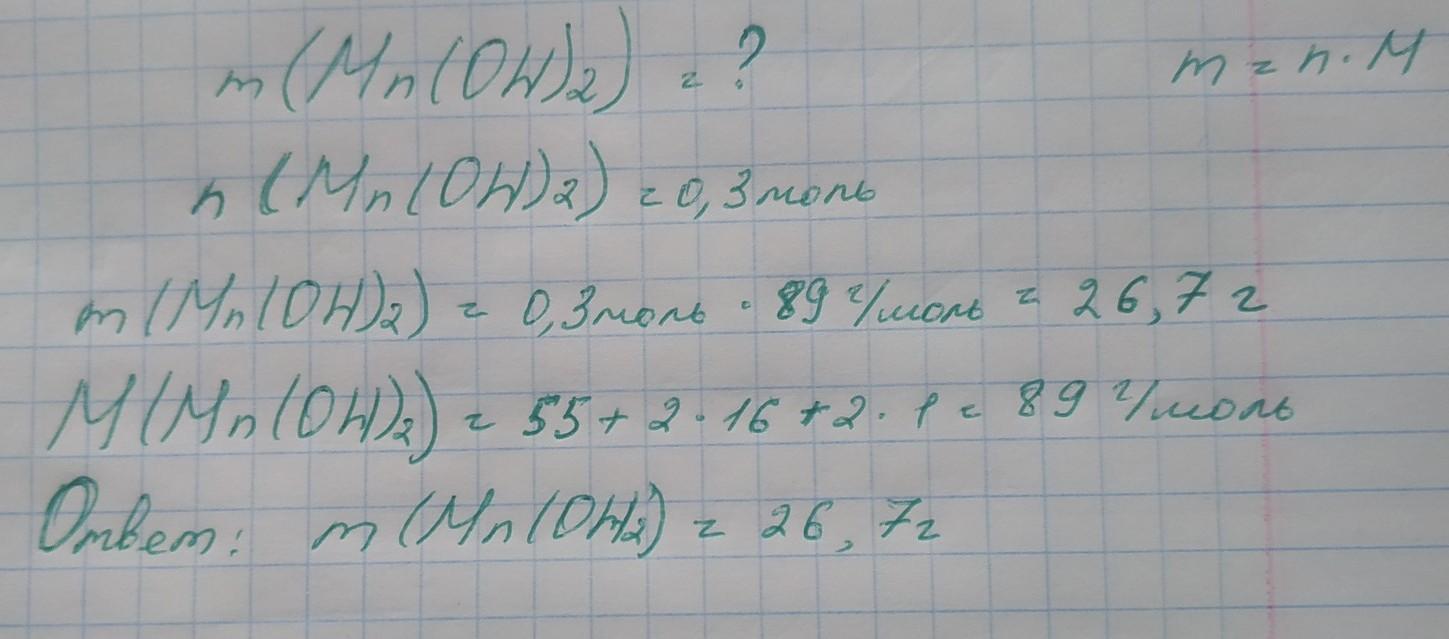 m(Mn(OH)2) = ? m = n · M
n(Mn(OH)2) = 0,3 моль
m(Mn(OH)2) = 0,3 моль · 89 г/моль = 26,7 г
M(Mn(OH)2) = 55 + 2 · 16 + 2 · 1 = 89 г/моль
Ответ: m(Mn(OH)2) = 26,7г